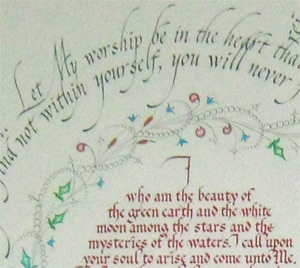 Let My worship be in the heart tha
find not within yourself, you will never f
I
who am the beauty of
the green earth and the white
moon among the stars and the
mysteries of the waters. I call upon
your soul to arise and come unto Me.